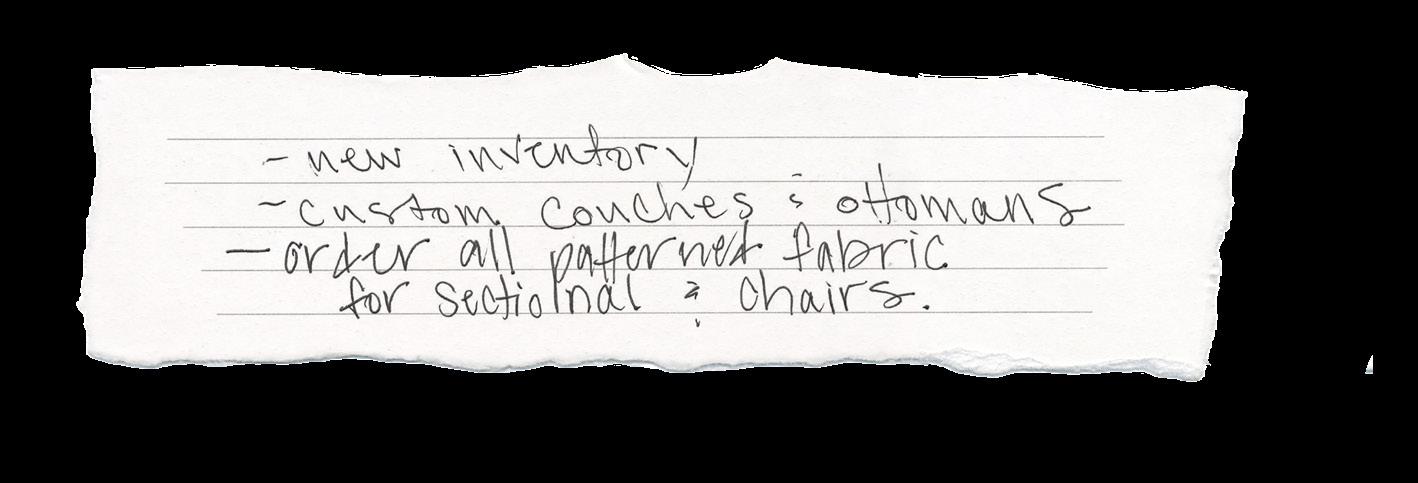 - new inventory
- custom couches & ottomans
- order all patterned fabric
for sectiolnal & chairs.